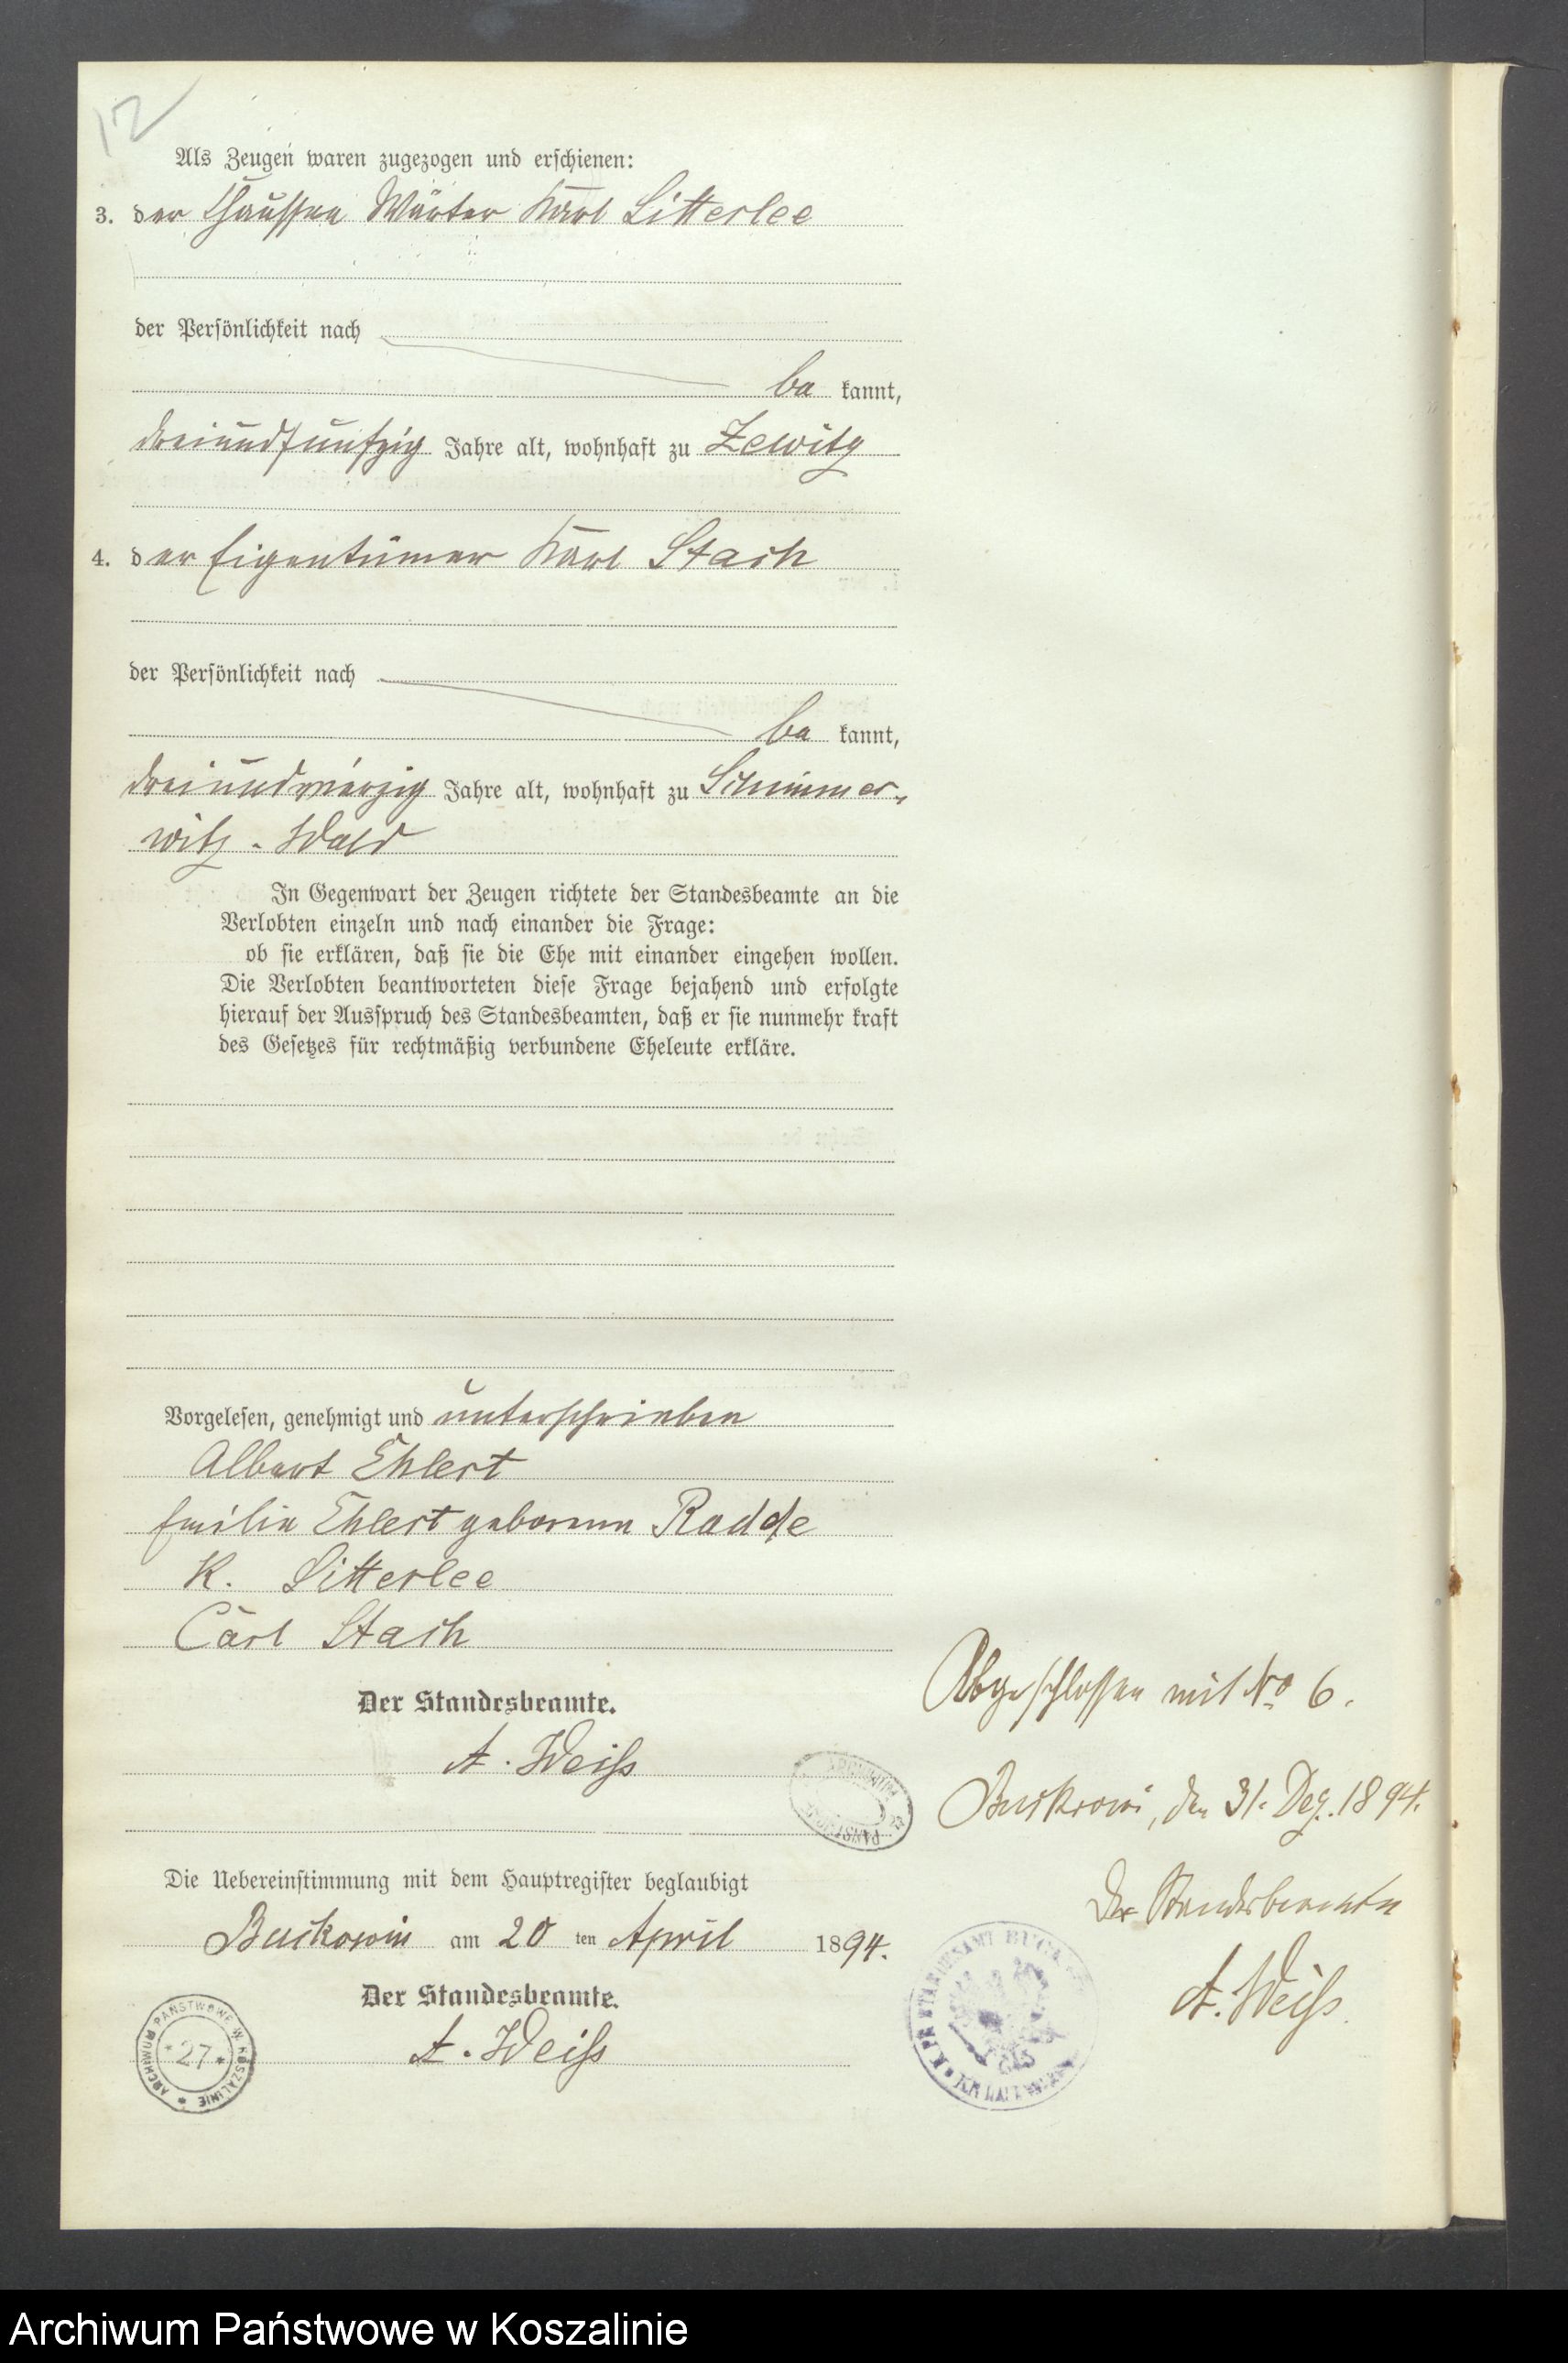 12
Als Zeugen waren zugezogen und erschienen:
3. der Chaussee Wärter Karl Litterlee
der Persönlichkeit nach
be kannt,
dreiundfünfzig Jahre alt, wohnhaft zu Zewitz
4. der Eigentümer Karl Stach
der Persönlichkeit nach
be kannt,
dreiundvierzig Jahre alt, wohnhaft zu Schimmer-
witz-Wald
In Gegenwart der Zeugen richtete der Standesbeamte an die
Verlobten einzeln und nach einander die Frage:
ob sie erklären, daß sie die Ehe mit einander eingehen wollen.
Die Verlobten beantworteten diese Frage bejahend und erfolgte
hierauf der Ausspruch des Standesbeamten, daß er sie nunmehr kraft
des Gesetzes für rechtmäßig verbundene Eheleute erkläre.
Vorgelesen, genehmigt und unterschrieben
Albert Ehlert
Emilie Ehlert geborene Radde
K. Litterlee
Carl Stach
Der Standesbeamte.
A. Weiß
Abgeschlossen mit No 6.
Buckowin, den 31. Dez. 1894.
Der Standesbeamte
A. Weiß.
Die Uebereinstimmung mit dem Hauptregister beglaubigt
Buckowin am 20 ten April 1894.
Der Standesbeamte.
A. Weiß
ARCHIWUM PAŃSTWOWE W KOSZALINIE
* 27 *
Archiwum Państwowe w Koszalinie